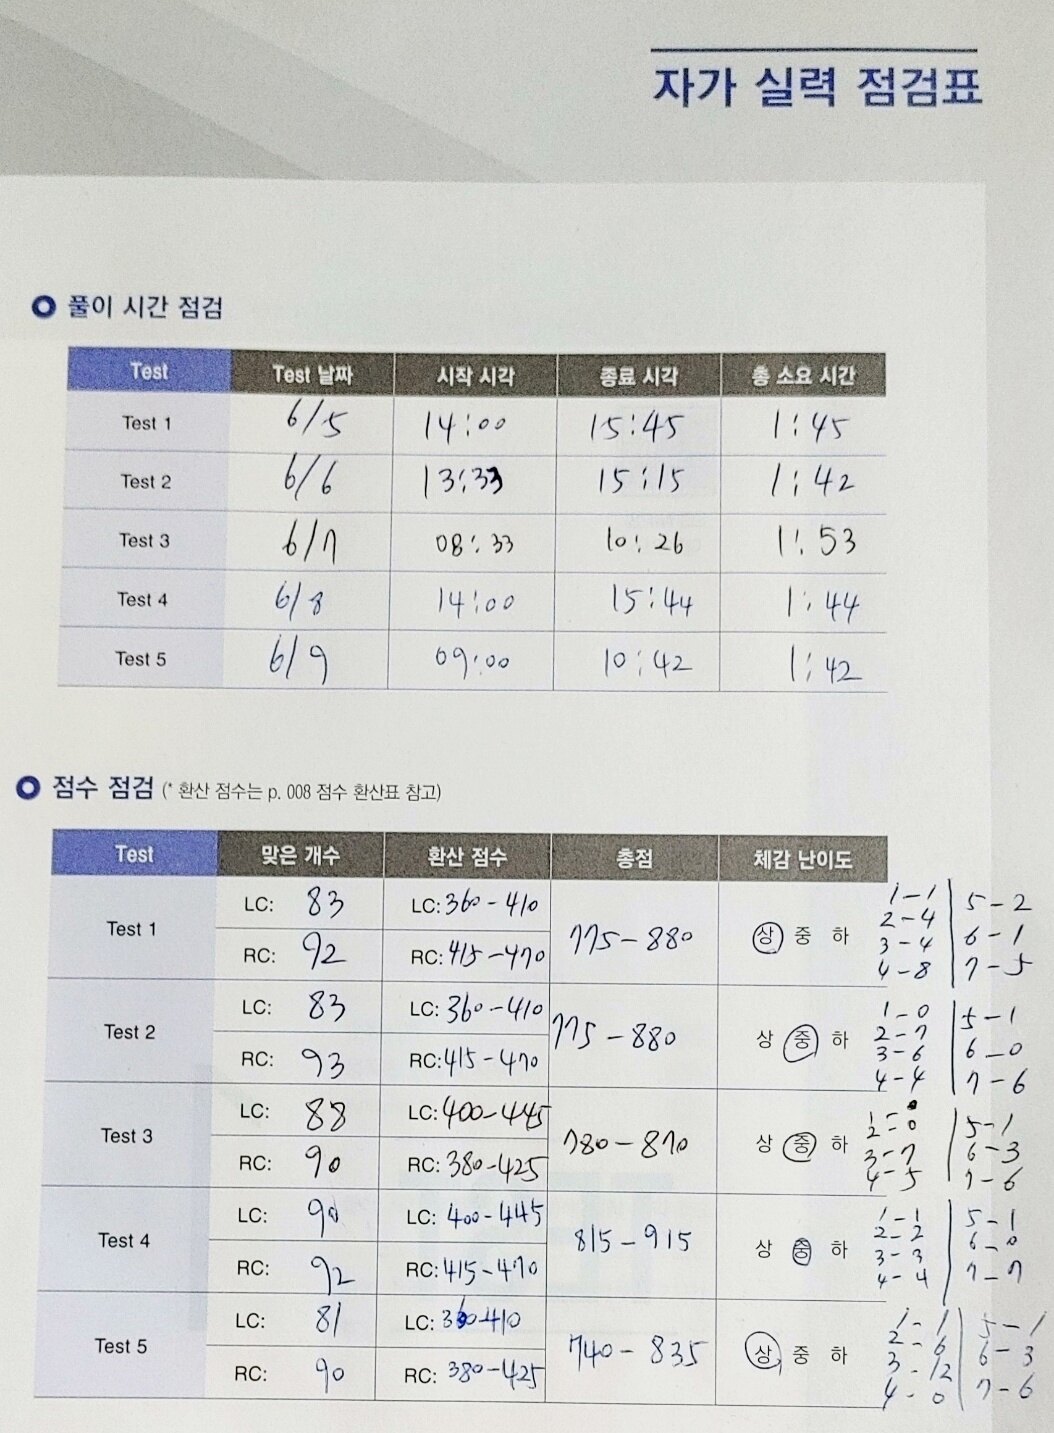 자가 실력 점검표
풀이 시간 점검
Test Test 날짜 시작 시각 종료 시각 총 소요 시간
Test 1 6/5 14:00 15:45 1:45
Test 2 6/6 13:33 15:15 1:42
Test 3 6/7 08:33 10:26 1:53
Test 4 6/8 14:00 15:44 1:44
Test 5 6/9 09:00 10:42 1:42
점수 점검 (* 환산 점수는 p. 008 점수 환산표 참고)
Test 맞은 개수 환산 점수 총점 체감 난이도
Test 1
LC: 83 LC: 360-410
RC: 92 RC: 415-470
775-880
상 중 하
1-1 5-2
2-4 6-1
3-4 7-5
4-8
Test 2
LC: 83 LC: 360-410
RC: 93 RC: 415-470
775-880
상 중 하
1-0 5-1
2-7 6-0
3-6 7-6
4-4
Test 3
LC: 88 LC: 400-445
RC: 90 RC: 380-425
780-870
상 중 하
2-0 5-1
3-7 6-3
4-5 7-6
Test 4
LC: 90 LC: 400-445
RC: 92 RC: 415-470
815-915
상 중 하
1-1 5-1
2-2 6-0
3-3 7-7
4-4
Test 5
LC: 81 LC: 360-410
RC: 90 RC: 380-425
740-835
상 중 하
1-1 5-1
2-6 6-3
3-12 7-6
4-0